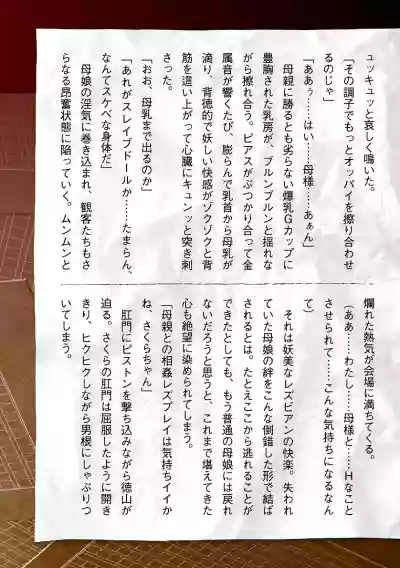 ュッキュッと哀しく鳴いた。
「その調子でもっとオッパイを擦り合わせ
るのじゃ」
「ああぅ……はい……母様……あぁん」
母親に勝るとも劣らない爆乳Gカップに
豊胸された乳房が、ブルンブルンと揺れな
がら擦れ合う。ピアスがぶつかり合って金
属音が響くたび、膨らんで乳首から母乳が
滴り、背徳的で妖しい快感がゾクゾクと背
筋を這い上がって心臓にキュンッと突き刺
さった。
「おお、母乳まで出るのか」
「あれがスレイブドールか……たまらん、
なんてスケベな身体だ」
母娘の淫気に巻き込まれ、観客たちもさ
らなる昂奮状態に陥っていく。ムンムンと
爛れた熱気が会場に満ちてくる。
(ああ……わたし……母様と……Hなこと
させられて……こんな気持ちになるなん
て)
それは妖美なレズビアンの快楽。失われ
ていた母娘の絆をこんな倒錯した形で結ば
されるとは。たとえここから逃れることが
できたとしても、もう普通の母娘には戻れ
ないだろうと思うと、これまで堪えてきた
心も絶望に染められてしまう。
「母親との相姦レズプレイは気持ちイイか
ね、さくらちゃん」
肛門にピストンを撃ち込みながら徳山が
迫る。さくらの肛門は屈服したように開き
きり、ヒクヒクしながら男根にしゃぶりつ
いてしまう。